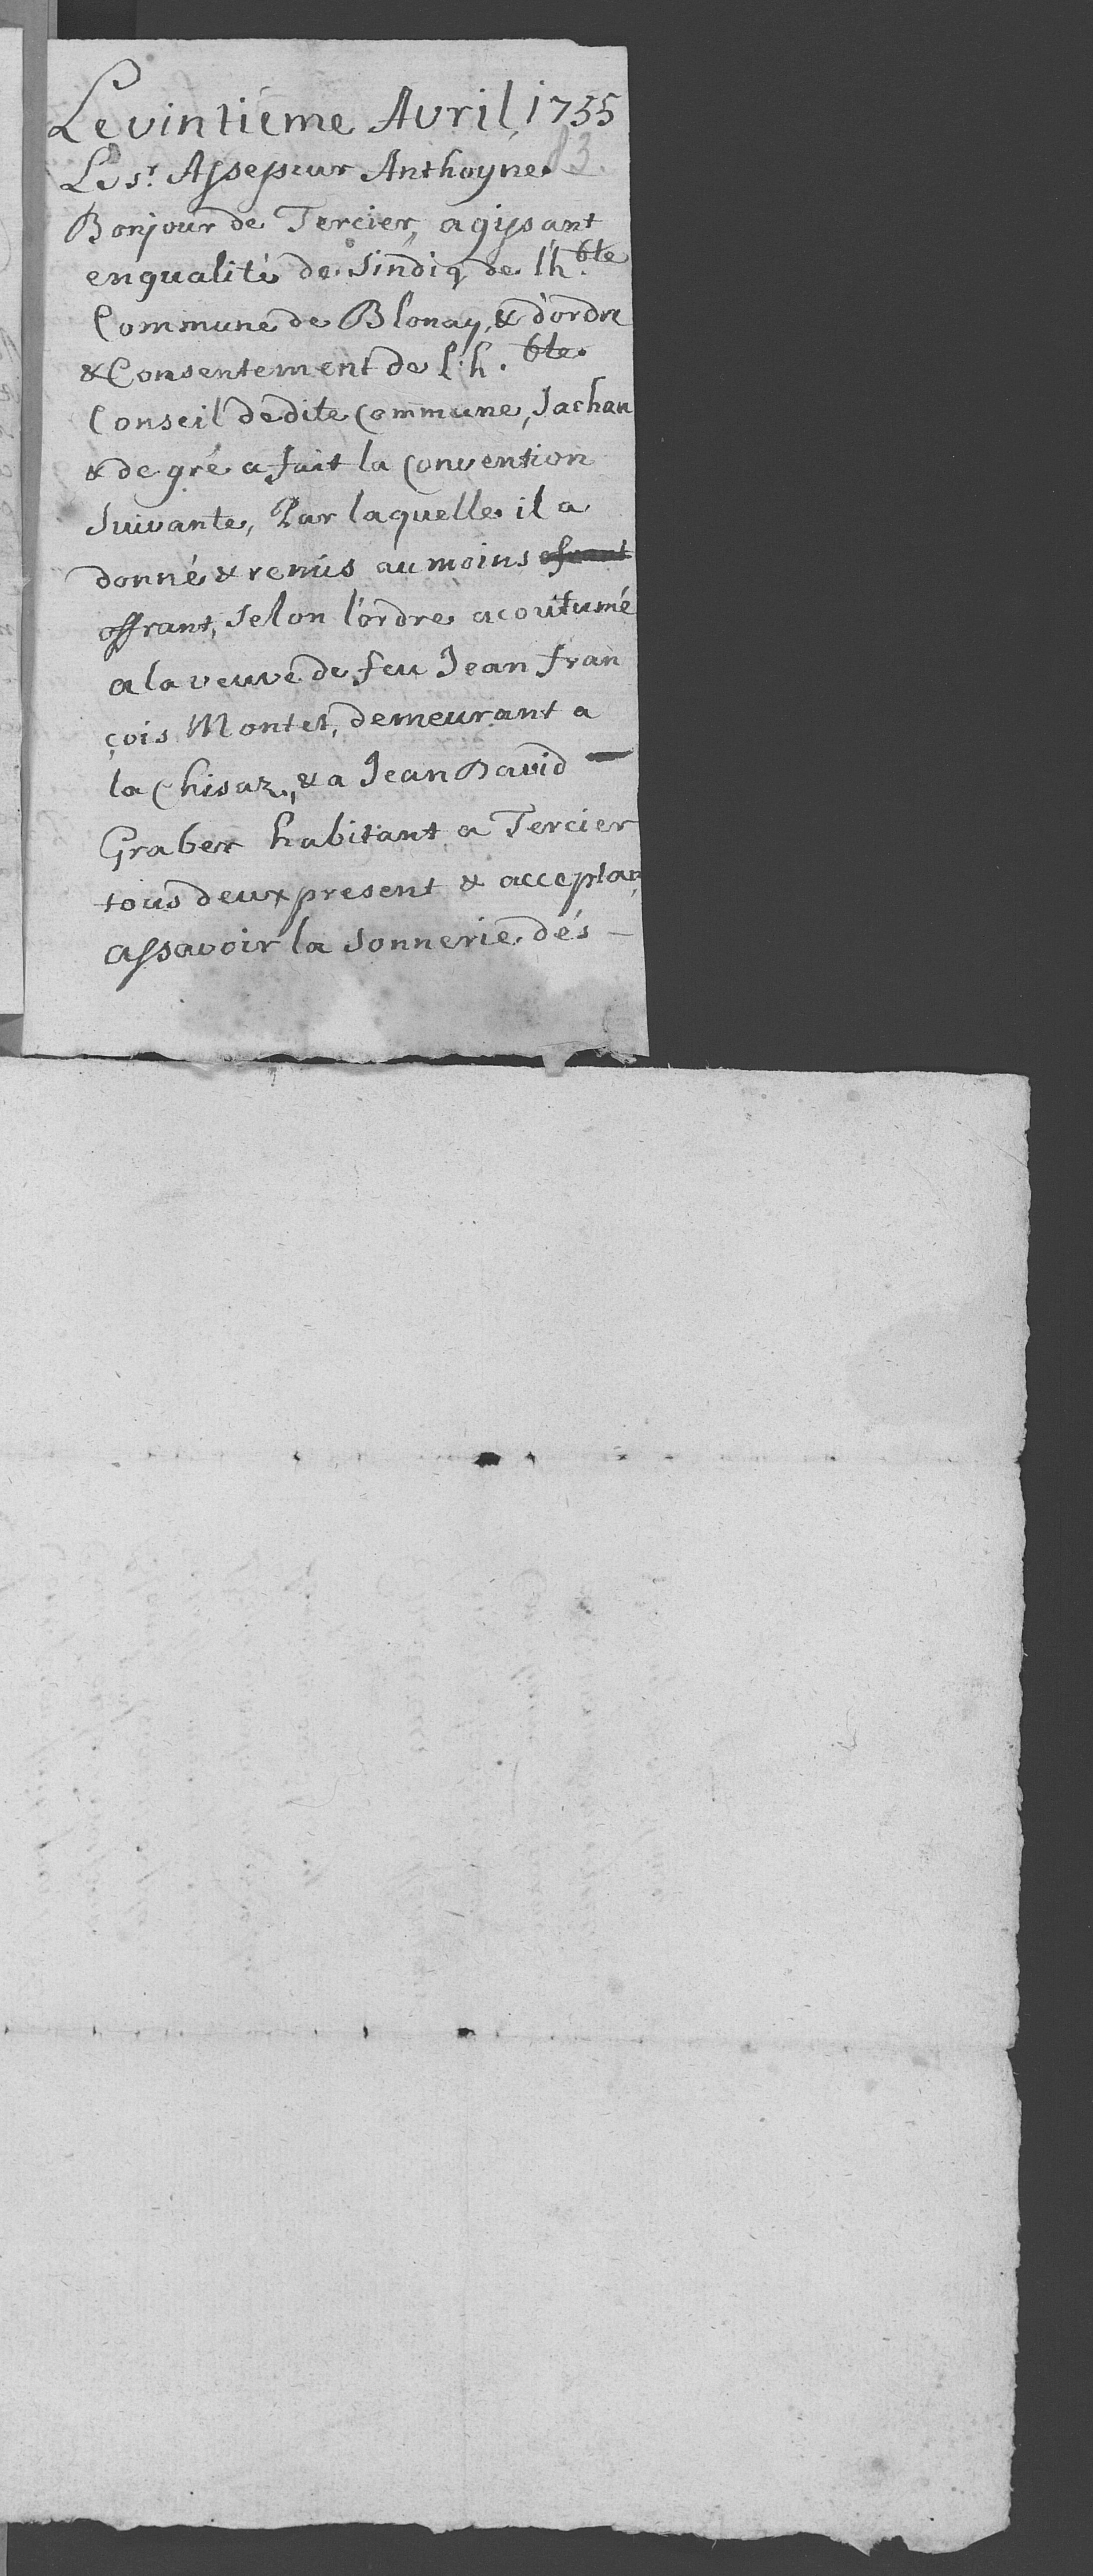 Le vintiéme Avril 1755
83.
Le sr. Assesseur Anthoyne
Bonjour de Tercier, agissant
en qualité de Sindiq de lh.ble
Commune de Blonay, & d'ordre
& Consentement de l'h.ble
Conseil de dite Commune, Sachan
& de gré a fait la Convention
Suivante, Par laquelle il a
donné & remis au moins
offrant, Selon l'ordre acoutumé
a la veuve de feu Jean fran
çois Montet, demeurant a
la Chisaz, & a Jean David
Graber habitant a Tercier
tous deux present & acceptan
assavoir la Sonnerie dés